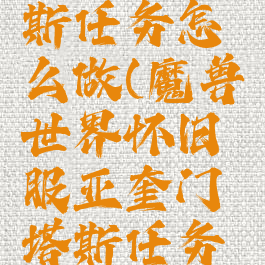 斯任务怎
么做(魔兽
世界怀旧
服亚奎门
塔斯任务